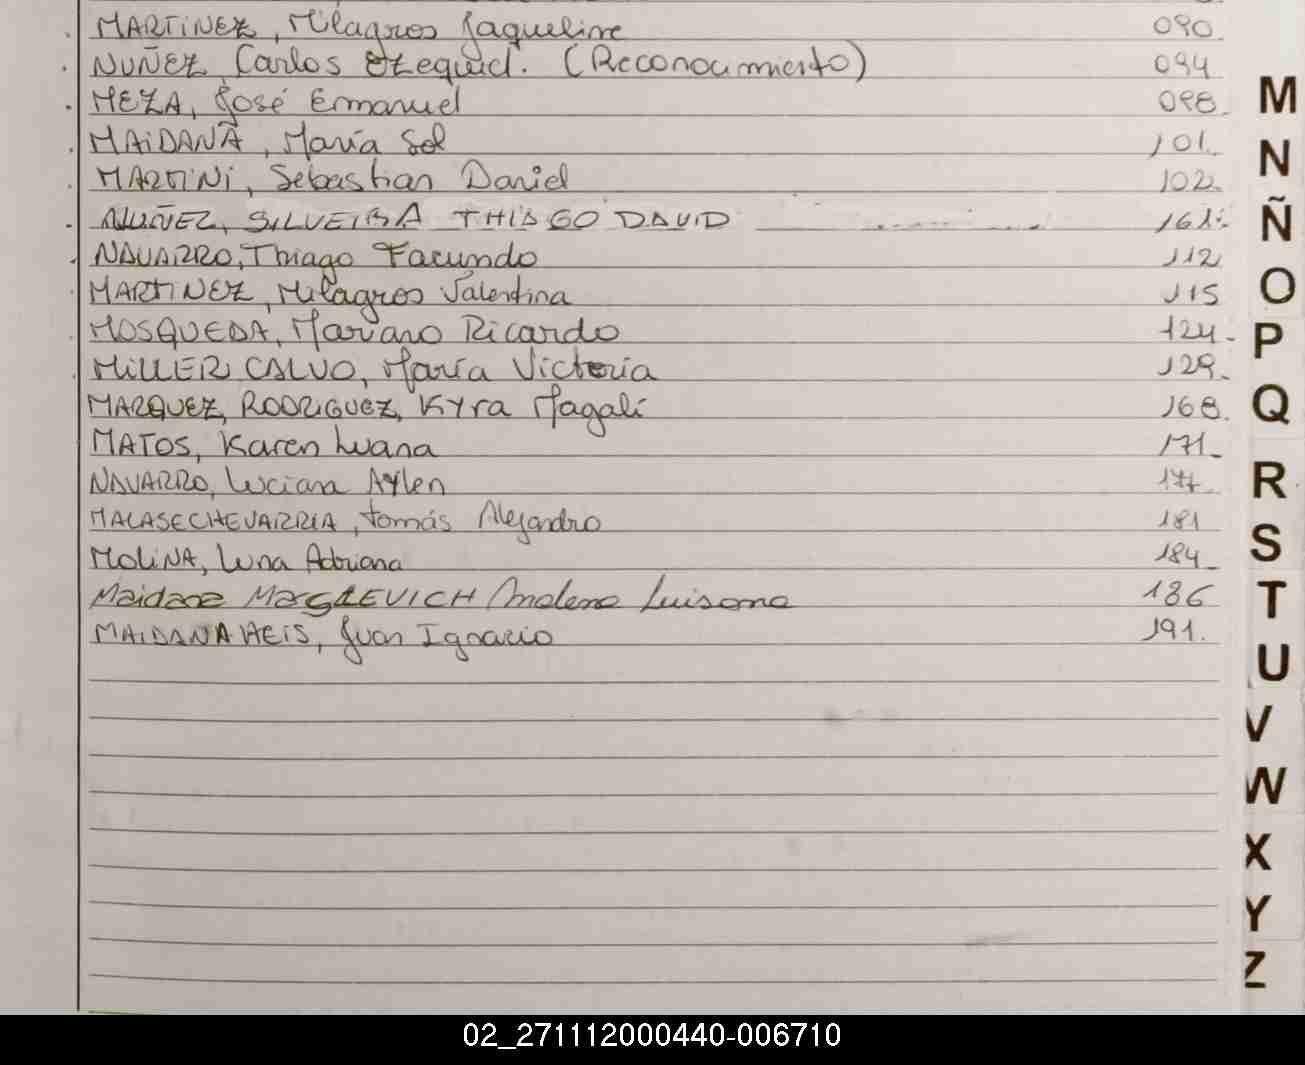 MARTINEZ, Milagros Jaqueline 090.
NUÑEZ, Carlos Ezequiel. (Reconocimiento) 094
MEZA, José Emmanuel 098.
MAIDANA, María Sol 101.
MARTINI, Sebastian Daniel 102.
NUÑEZ, SILVEIRA THIAGO DAVID 161.
NAVARRO, Thiago Facundo 112
MARTINEZ, Milagros Valentina 115
MOSQUEDA, Mariano Ricardo 124.
MILLER CALVO, María Victoria 129.
MARQUEZ, RODRIGUEZ, Kyra Magalí 168.
MATOS, Karen Luana 171.
NAVARRO, Luciana Aylen 177.
MALASECHEVARRIA, Tomás Alejandro 181
MOLINA, Luna Adriana 184
Maidana Luisana 186
MAIDANA HEIS, Juan Ignacio 191.
M
N
Ñ
O
P
Q
R
S
T
U
V
W
X
Y
Z
02_271112000440-006710